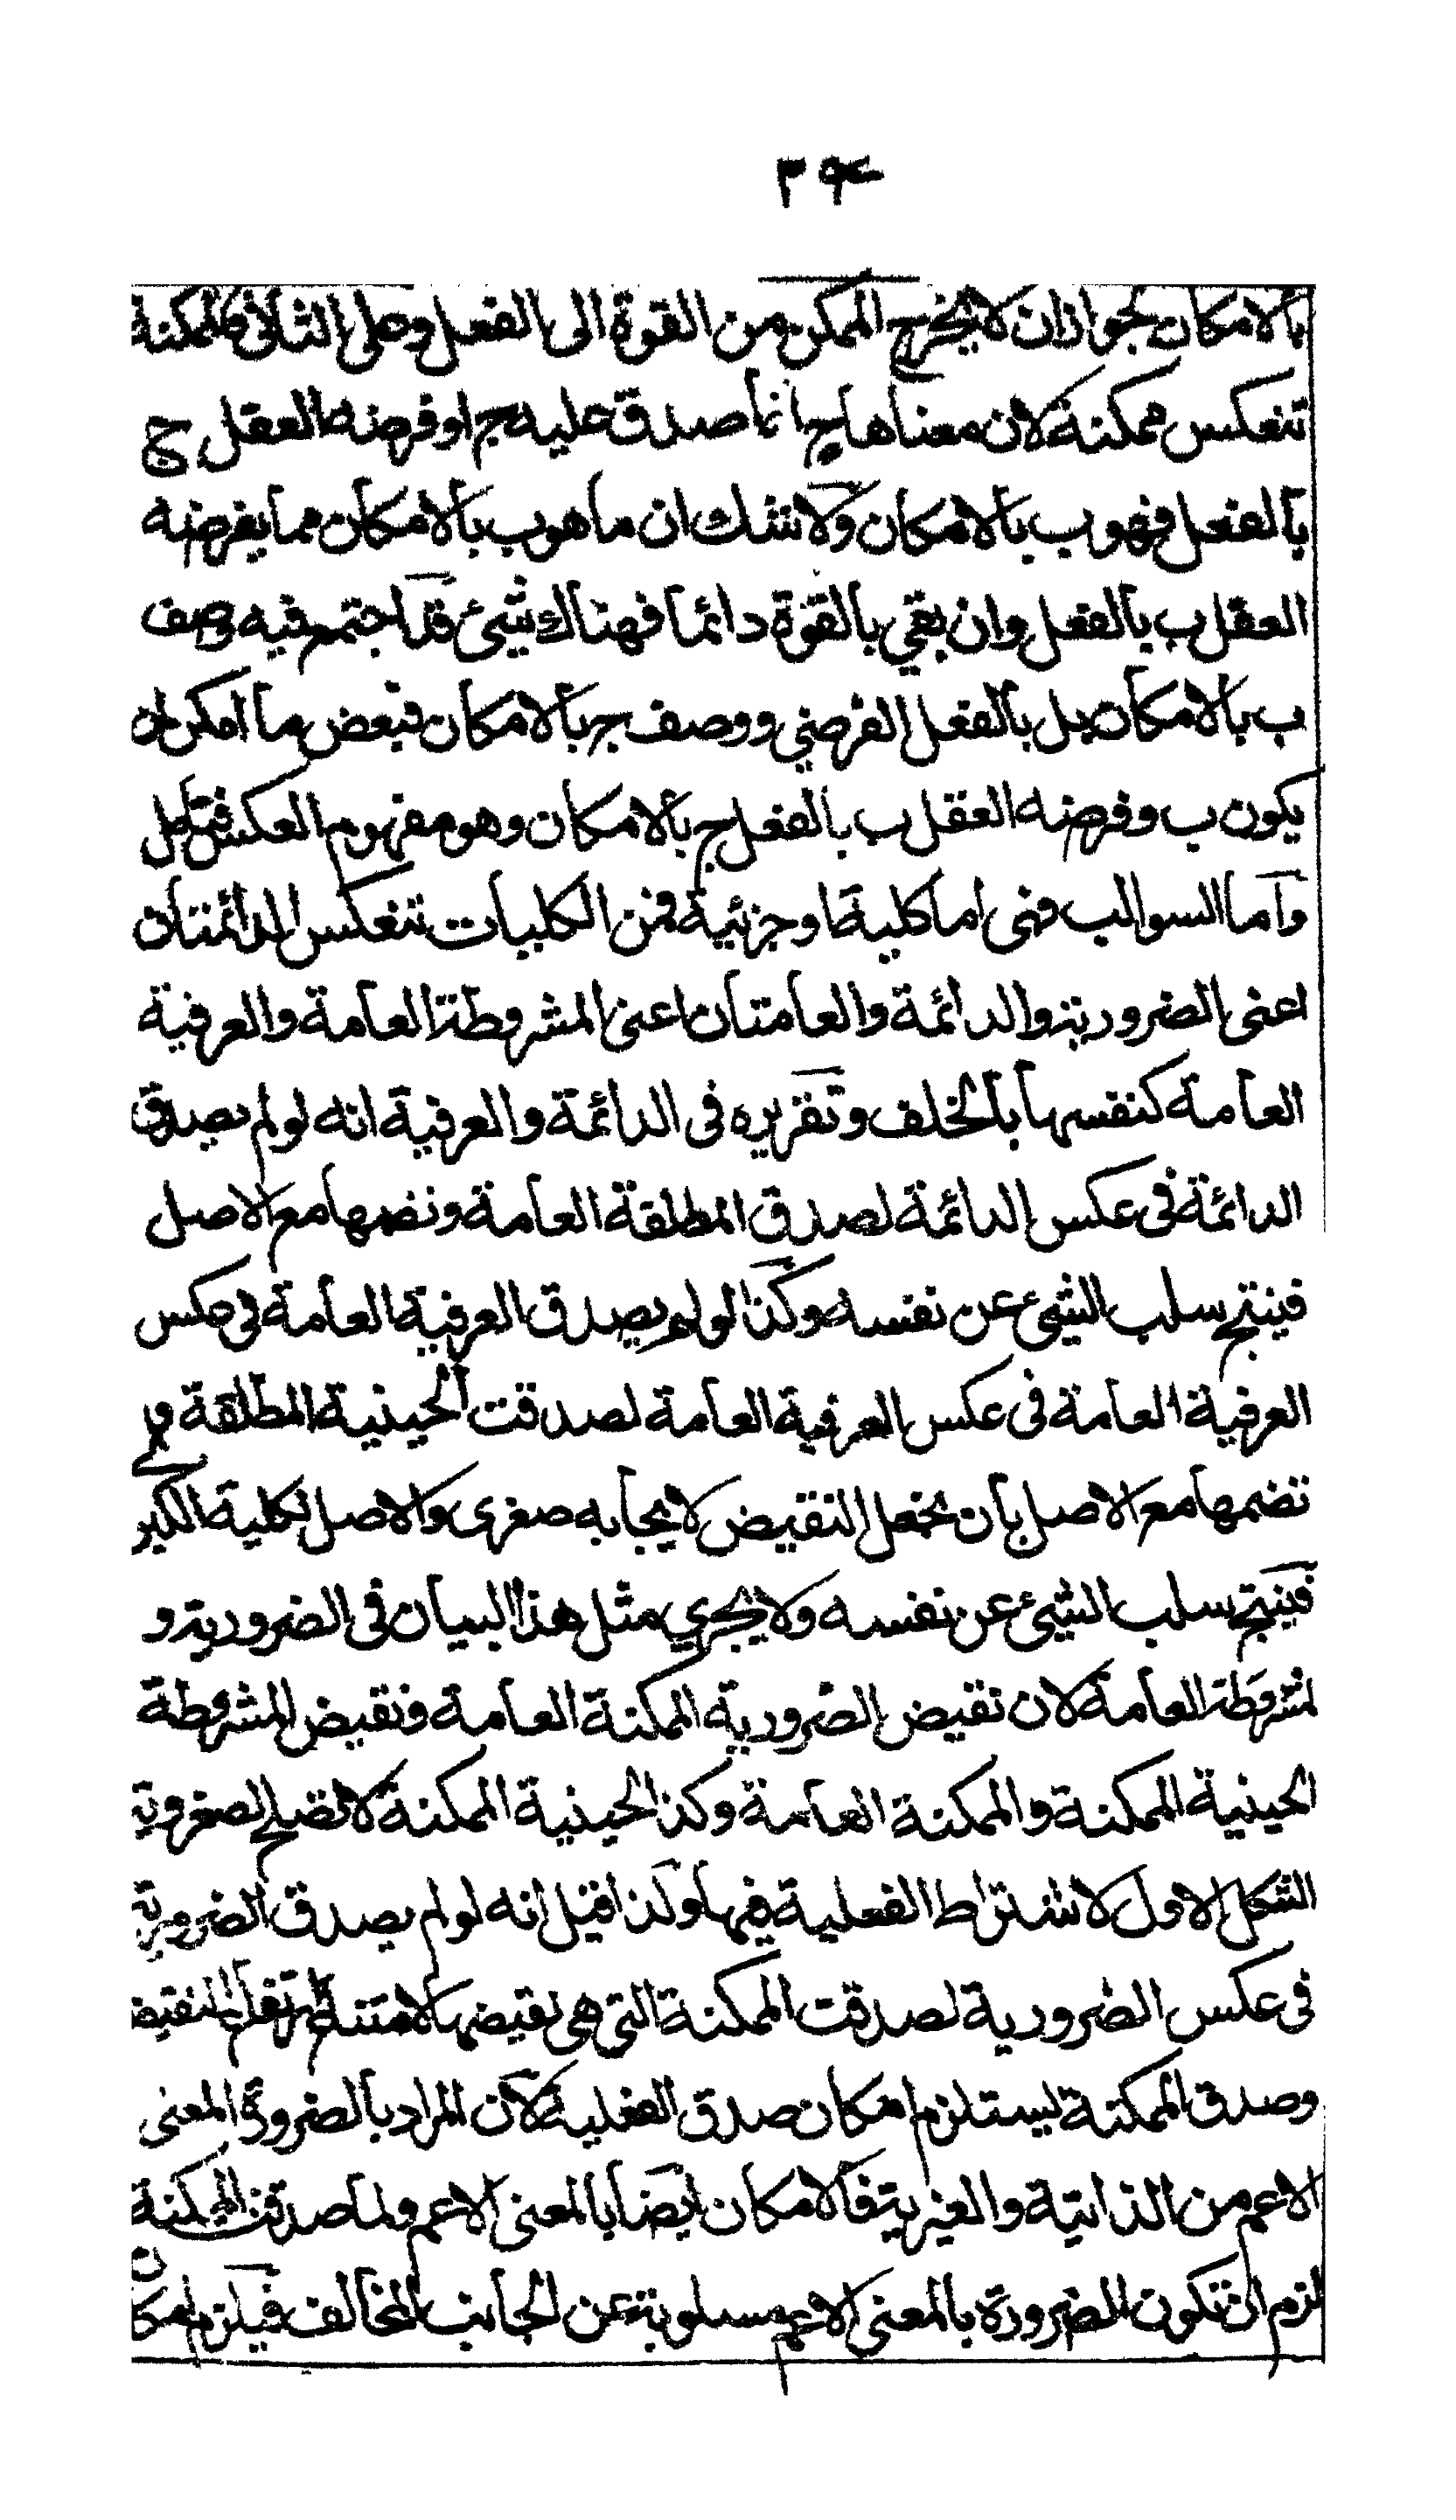 ٣٩٤
بالامكان لجواز ان لا يخرج الممكن من القوة الى الفعل وعلى الثانى فالممكنة
تنعكس ممكنة لان معناها ح ان ما صدق عليه ج او فرضه العقل ج
بالفعل فهو ب بالامكان ولا شك ان ما هو ب بالامكان مما يفرضه
العقل ب بالفعل وان بقي بالقوة دائما فهناك شيئ قد اجتمع فيه وصف
ب بالامكان بل بالفعل الفرضي ووصف ج بالامكان فبعض ما امكن ان
يكون ب وفرضه العقل ب بالفعل ج بالامكان وهو مفهوم العكس فتامل
واما السوالب فهى اما كلية او جزئية فمن الكليات تنعكس الدائمتان
اعنى الضرورية والدائمة والعامتان اعنى المشروطة العامة والعرفية
العامة كنفسها بالخلف وتقريره فى الدائمة والعرفية انه لو لم يصدق
الدائمة فى عكس الدائمة لصدق المطلقة العامة ونضمها مع الاصل
فينتج سلب الشيئ عن نفسه وكذا لو لم يصدق العرفية العامة فى عكس
العرفية العامة فى عكس العرفية العامة لصدقت الحينية المطلقة و
نضمها مع الاصل بان نجعل النقيض لايجابه صغرى والاصل لكلية الكبر
فينتج سلب الشيئ عن نفسه ولا يجري مثل هذا البيان فى الضرورية و
لمشروطة العامة لان نقيض الضرورية الممكنة العامة ونقيض المشروطة
الحينية الممكنة والممكنة العامة وكذا الحينية الممكنة لا تصلح لصغروية
الشكل الاول لاشتراط الفعلية فيها ولذا قيل انه لو لم يصدق الضرورية
فى عكس الضرورية لصدقت الممكنة التى هى نقيضها لامتناع ارتفاع النقيض
وصدق الممكنة يستلزم امكان صدق الفعلية لان المراد بالضرورة المعنى
الاعم من الذاتية والغيرية فالامكان ايضا بالمعنى الاعم ولما صدقت الممكنة
لزم ان تكون الضرورة بالمعنى الاعم مسلوبة عن الجانب المخالف فيلزم امكان